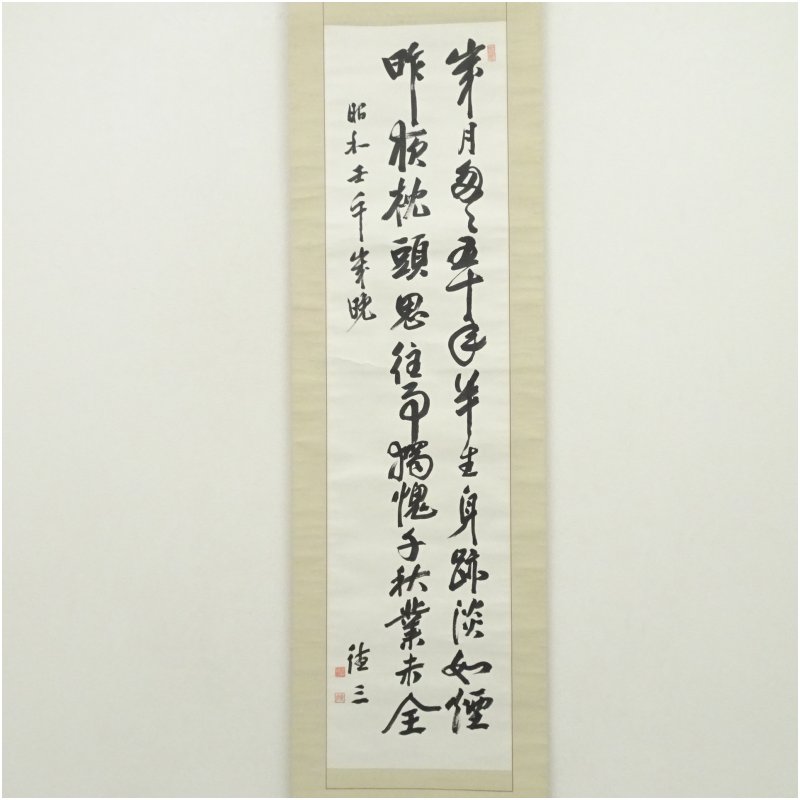 歳月匆々五十年半生身跡淡如煙
昨夜枕頭思往事獨愧千秋業未全
昭和壬午歳晩
徳三